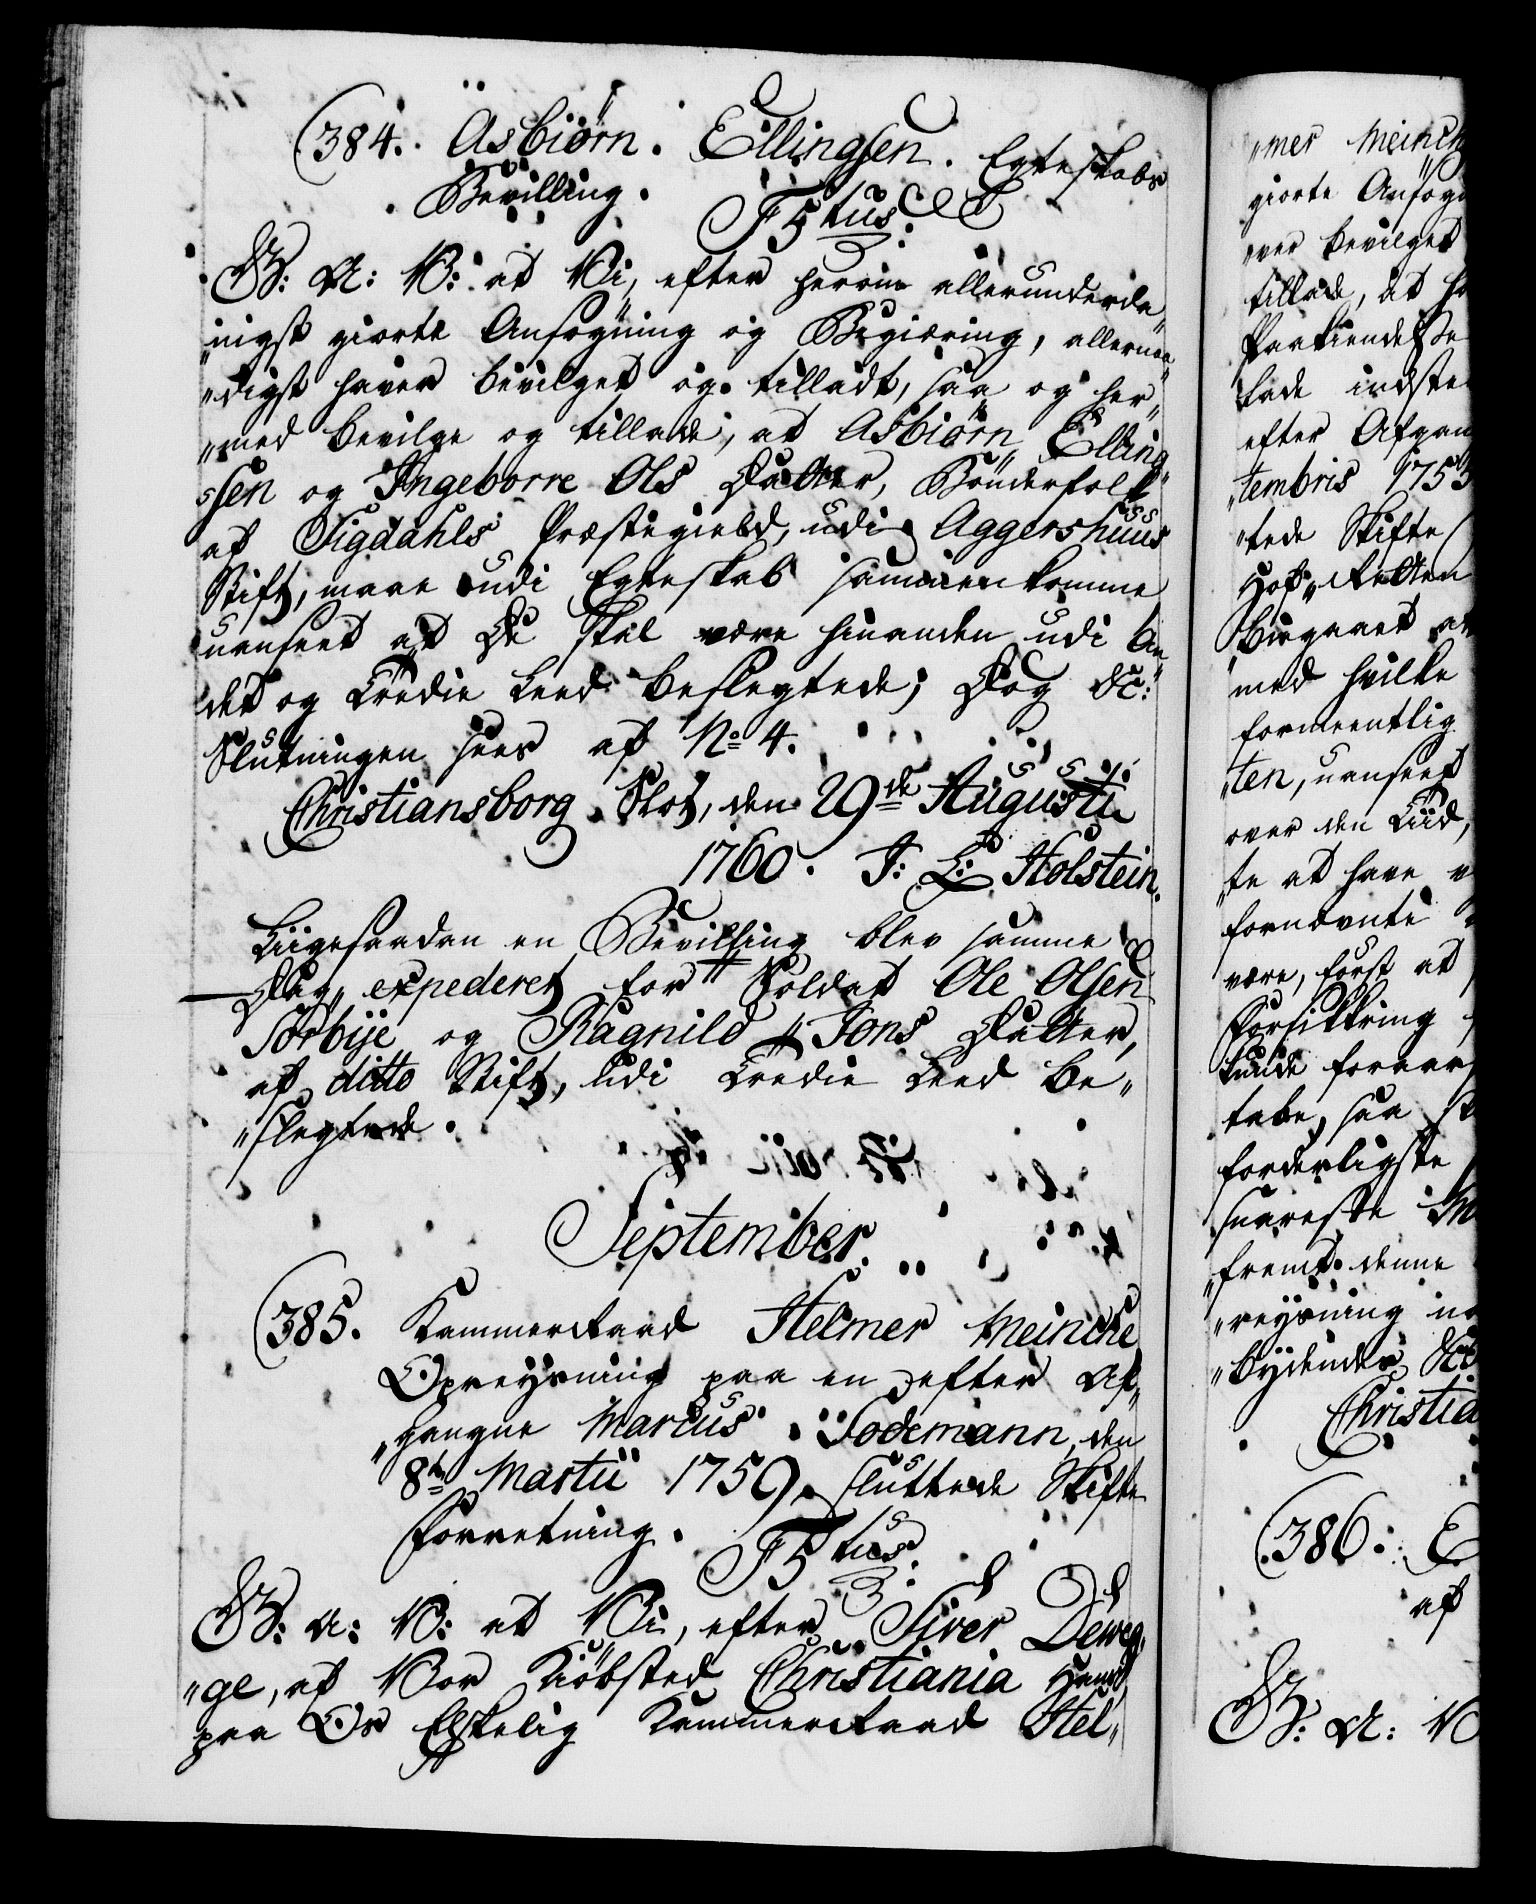 (384. Asbiørn Ellingsen. Egteskabs
Bevilling.
F5tus.
G: A: V: at Vi, efter herom allerunderda„
„nigst giorte Ansøgning og Begiæring, allernaa„
„digst haver bevilget og tilladt, saa og her„
„med bevilge og tillade, at Asbiørn Elling„
„sen og Ingeborre Ols Datter, Bønderfolk
af Sigdahls Præstegield, udi Aggershuus
Stift, maae udi Egteskab sammenkomme
uanseet at De skal være hinanden udi An„
det og Tredie Leed beslegtede; Dog &c:
Slutningen sees af No 4.
Christiansborg Slot, den 29de Augusti
1760. J: L: Holstein.
Liigesaadan en Bevilling blev samme
Dag expederet for Soldat Ole Olsen
Sørbÿe og Ragnild Jons Datter,
af ditto Stift, udi Tredie Leed be„
„slegtede.
September.
(385. Kammerraad Helmer Meincke
Opreysning paa en efter Af„
„gangne Marcus Todemann, den
8de Martii 1759. sluttede Skifte
Forretning.
F5tus.
G: A: V: at Vi, efter Siver Deweg„
„ge, af Vor Kiøbsted Christiania hans,
paa Os Elskelig Kammerraad Hel„
„mer Meinck
giorte Ansøg
„ver bevilget
tillade, at h
Paakiendelse
lade indste
efter Afgan
„tembris 1753
„tede Skifte
Hof„Retten
Biugaaet at
med hvilke
formeentlig
„ten, uanseet
over den Tiid,
„te at have v
fornævnte
være, først at
Forsikkring
kunde foraar
tabe, saa s
forderligste
snareste M
„fremt denne
„reysning in
„bydendes Sc
Christia
(386. E
af
G: A: V